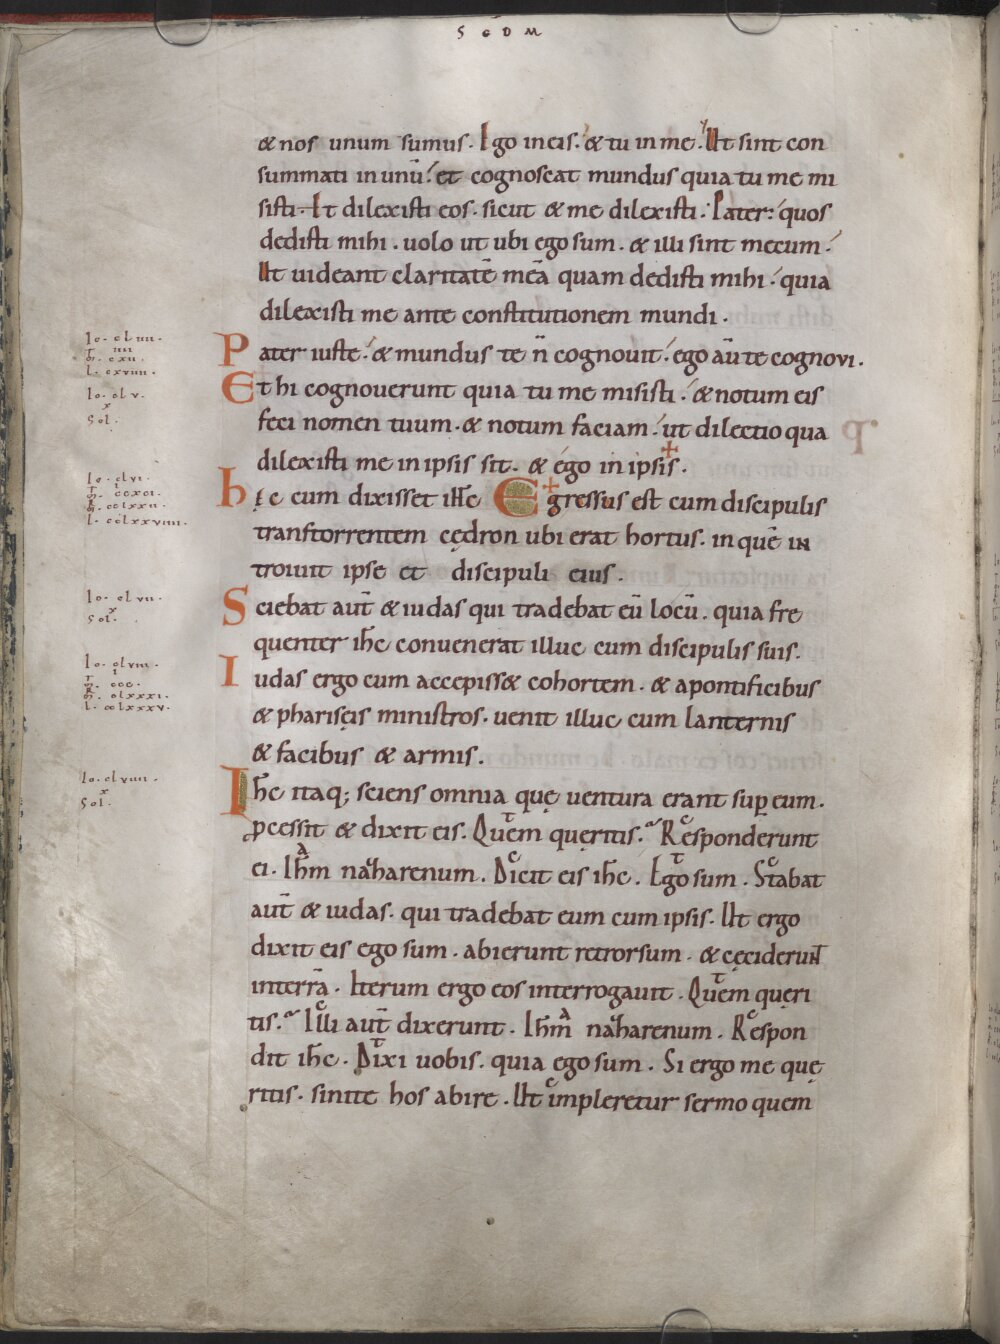 SCDM
& nos unum sumus. Ego in eis. & tu in me. Ut sint con
summati in unū. et cognoscat mundus quia tu me mi
sisti. Et dilexisti eos. sicut & me dilexisti. Pater. quos
dedisti mihi. uolo ut ubi ego sum. & illi sint mecum.
Ut uideant claritatē meā quam dedisti mihi. quia
dilexisti me ante constitutionem mundi.
Io. clıııı.
L. cxvıııı.
Pater iuste. & mundus te n̄ cognouit. ego aūt te cognovi.
Io. clv.
x
Sol.
Et hi cognouerunt quia tu me misisti. & notum eis
feci nomen tuum. & notum faciam. ut dilectio qua
dilexisti me in ipsis sit. & ego in ipsis.
Io. clvı.
L. cclxxvıııı.
hęc cum dixisset ih̄c Egressus est cum discipulis
transtorrentem cędron ubi erat hortus. in quē in
troiuit ipse et discipuli eius.
Io. clvıı.
x
Sol.
Sciebat aūt & iudas qui tradebat eū locū. quia fre
quenter ih̄c conuenerat illuc cum discipulis suis.
Io. clvııı.
L. cclxxxv.
Iudas ergo cum accepiss& cohortem. & apontificibus
& pharisęis ministros. uenit illuc cum lanternis
& facibus & armis.
Io. clvıııı.
x
Sol.
Ih̄c itaq; sciens omnia quę uentura erant sup̱ eum.
ꝓcessit & dixit eis. Quem queritis. Responderunt
ei. Ih̄m nazharenum. Dicit eis ih̄c. Ego sum. Stabat
aūt & iudas. qui tradebat eum cum ipsis. Ut ergo
dixit eis ego sum. abierunt retrorsum. & cęciderunt
in terrā. Iterum ergo eos interrogauit. Quem queri
tis. Illi aūt dixerunt. Ih̄m nazharenum. Respon
dit ih̄c. Dixi uobis. quia ego sum. Si ergo me quę
ritis. sinite hos abire. Ut impleretur sermo quem